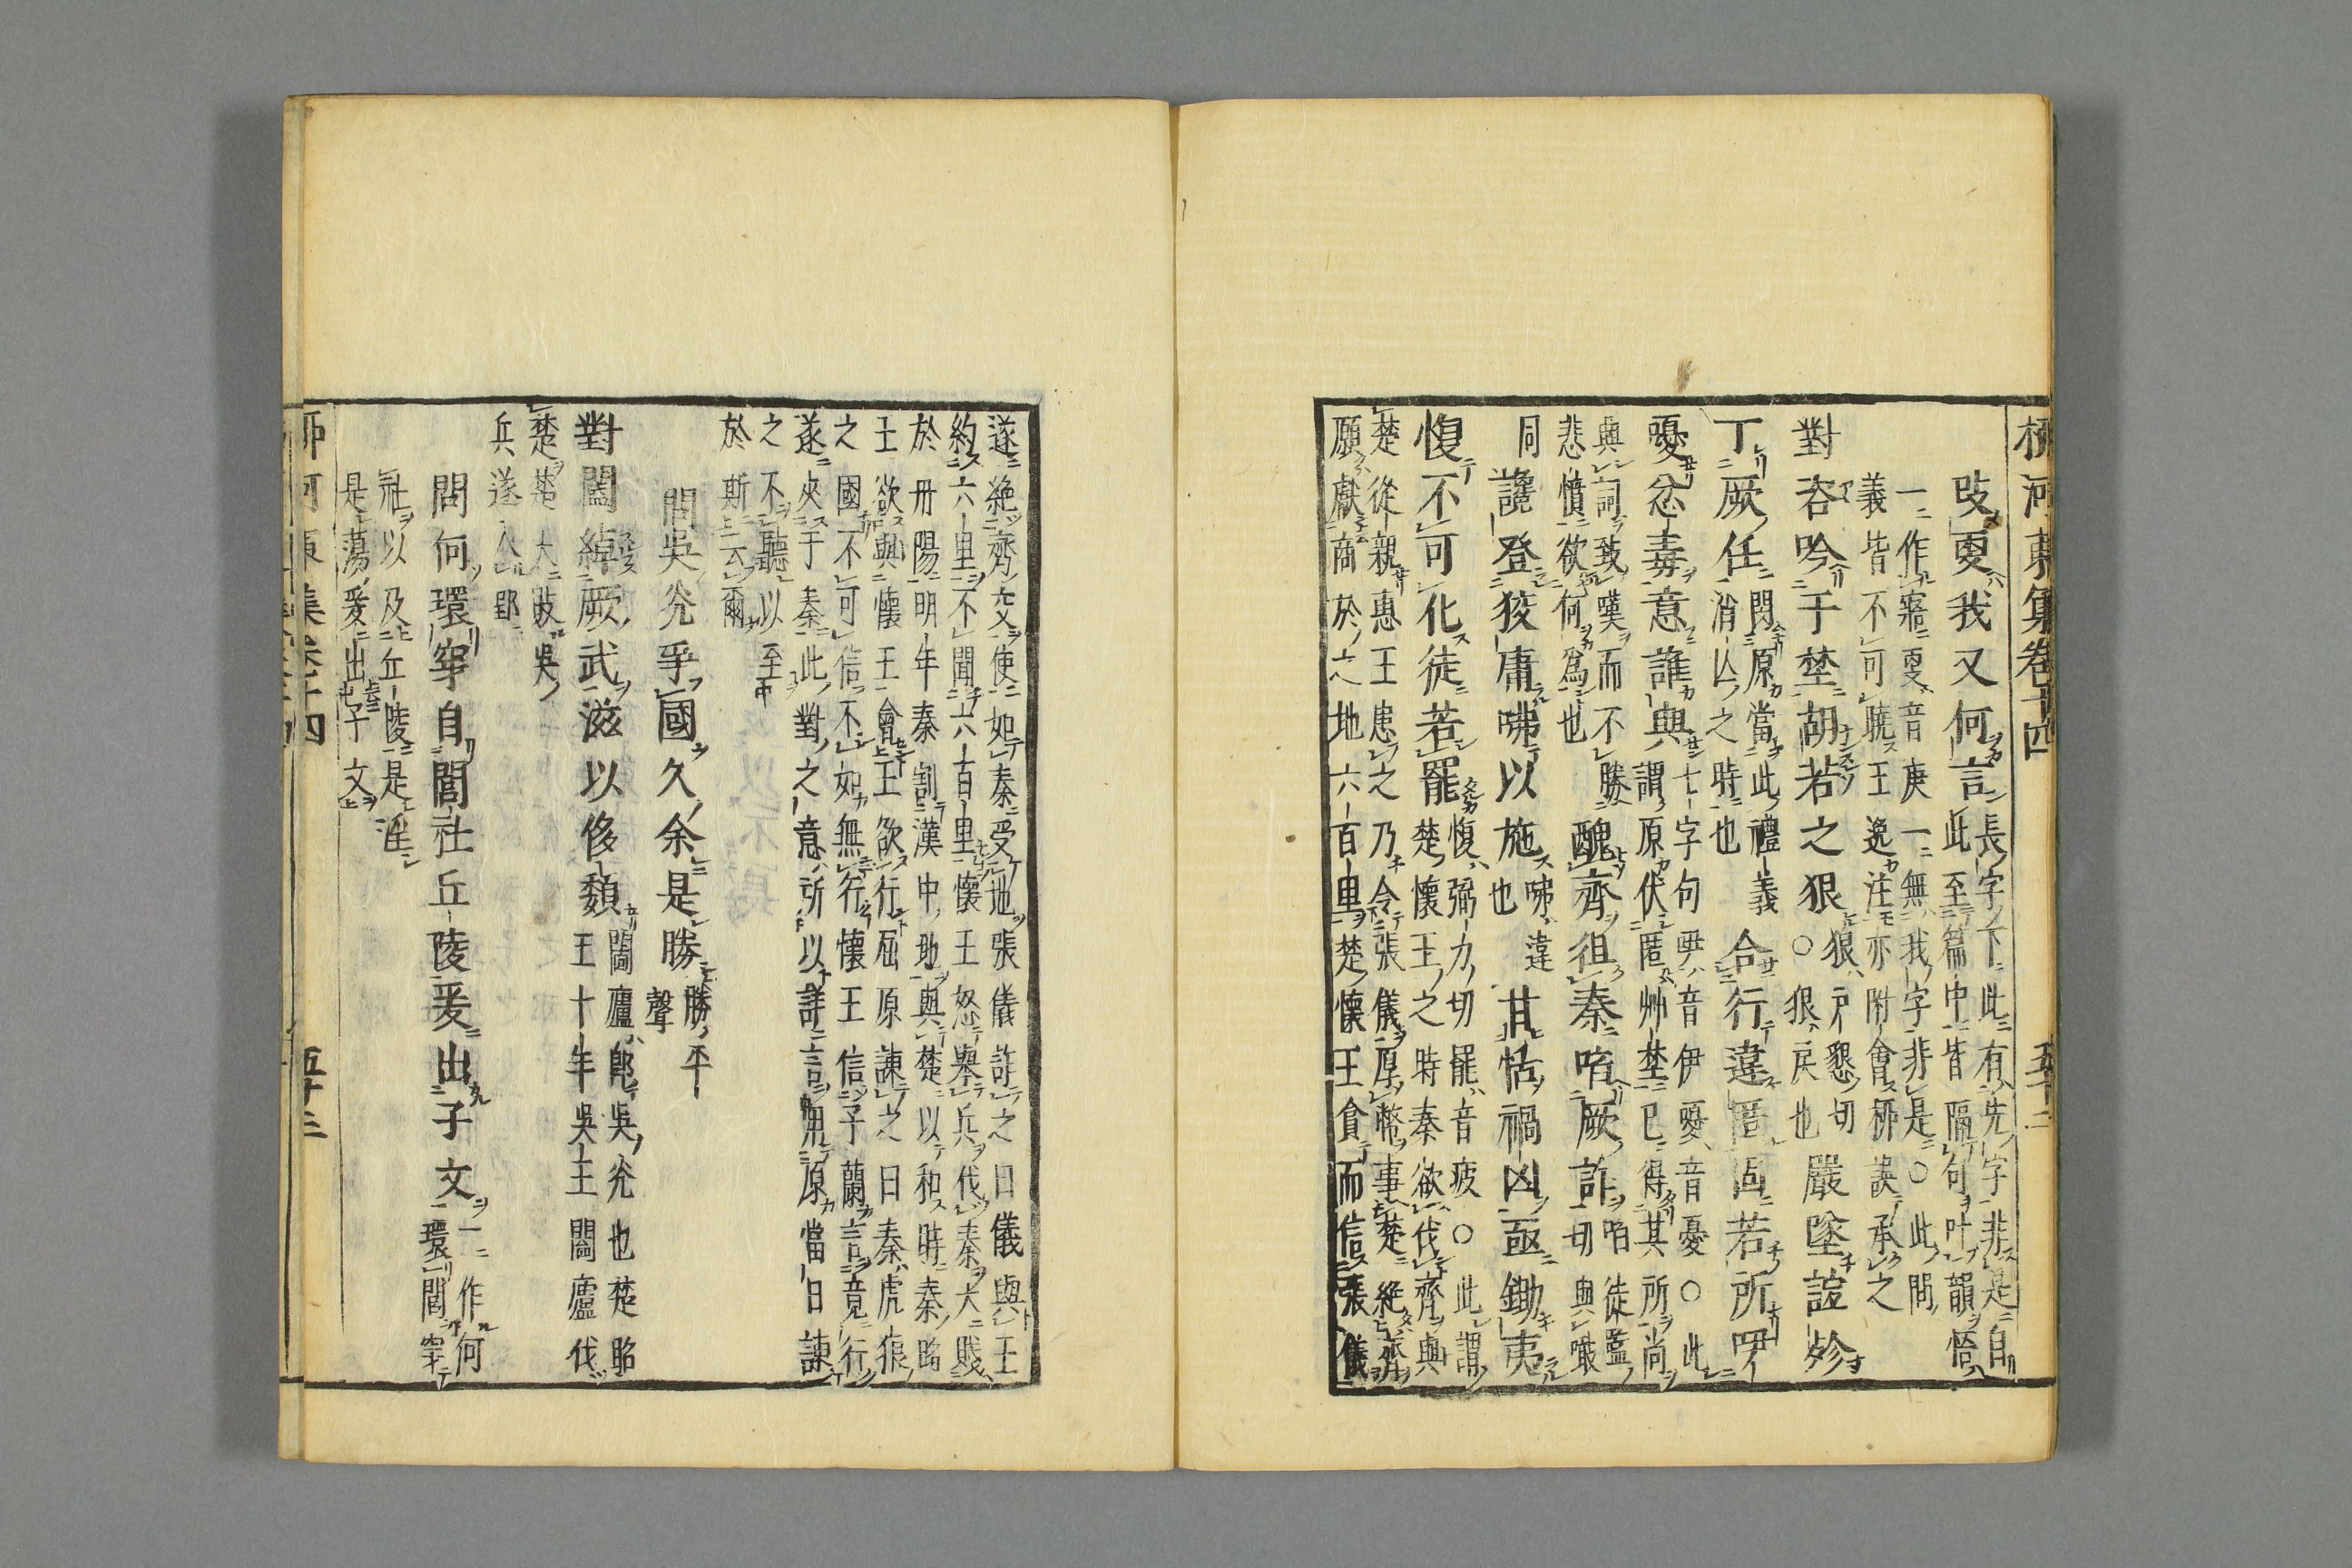 柳河東集卷十四 五十二
攺更我又何言長字下此有先字非是自
此至篇中皆隔句叶韻悟
一作寤更音庚一無我字非是○此問
義皆不可曉王逸注亦附會柳誤承之
對咨吟于埜胡若之狠狠戸懇切
○狠戾也嚴墜誼殄
丁厥任問原當此禮義
消亾之時也合行違匿固若所吚
懮忿毒意誰與七字句吚音伊懮音憂○此
謂原伏匿艸埜已得其所尚
與詞致嘆而不勝
悲憤欲何爲也醜齊徂秦啗厥詐啗徒濫
切與噉
同讒登狡庸咈以施咈違
也甘恬禍凶亟鋤夷
愎不可化徒若罷愎弼力切罷音疲○此謂
楚懷王之時秦欲伐齊與
楚從親惠王患之乃令張儀厚幣事楚絶齊
願獻商於之地六百里楚懷王貪而信張儀
遂絶齊交使如秦受地張儀詐之曰儀與王
約六里不聞六百里懷王怒舉兵伐秦大戰
於丹陽明年秦割漢中地與楚以和時秦昭
王欲與懷王會王欲行屈原諫之曰秦虎狼
之國不可信不如無行懷王信子蘭言竟行
遂夾于秦此對之意所以詳言畀原當日諫
之不聽以至
於斯云爾
問吳光爭國久余是勝勝平
聲
對闔綽厥武滋以侈頽闔廬郎吳光也楚昭
王十年吳王闔廬伐
楚楚大敗吳
兵遂入郢
問何環穿自閭社丘陵爰出子文一作何
環閭穿
社以及丘陵是淫
是蕩爰出子文
柳河東集卷十四 五十三